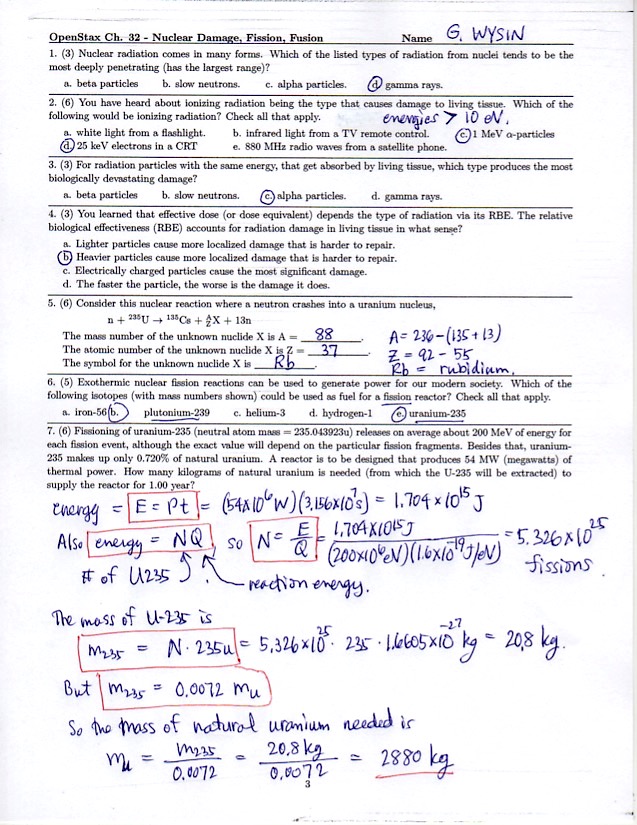 OpenStax Ch. 32 - Nuclear Damage, Fission, Fusion Name G. WYSIN
1. (3) Nuclear radiation comes in many forms. Which of the listed types of radiation from nuclei tends to be the
most deeply penetrating (has the largest range)?
a. beta particles b. slow neutrons. c. alpha particles. d. gamma rays.
2. (6) You have heard about ionizing radiation being the type that causes damage to living tissue. Which of the
following would be ionizing radiation? Check all that apply. energies > 10 eV.
a. white light from a flashlight. b. infrared light from a TV remote control. c. 1 MeV α-particles
d. 25 keV electrons in a CRT e. 880 MHz radio waves from a satellite phone.
3. (3) For radiation particles with the same energy, that get absorbed by living tissue, which type produces the most
biologically devastating damage?
a. beta particles b. slow neutrons. c. alpha particles. d. gamma rays.
4. (3) You learned that effective dose (or dose equivalent) depends the type of radiation via its RBE. The relative
biological effectiveness (RBE) accounts for radiation damage in living tissue in what sense?
a. Lighter particles cause more localized damage that is harder to repair.
b. Heavier particles cause more localized damage that is harder to repair.
c. Electrically charged particles cause the most significant damage.
d. The faster the particle, the worse is the damage it does.
5. (6) Consider this nuclear reaction where a neutron crashes into a uranium nucleus,
n + ²³⁵U → ¹³⁵Cs + ᴬ_Z X + 13n
The mass number of the unknown nuclide X is A = 88. A = 236 - (135 + 13)
The atomic number of the unknown nuclide X is Z = 37. Z = 92 - 55
The symbol for the unknown nuclide X is Rb. Rb = rubidium.
6. (5) Exothermic nuclear fission reactions can be used to generate power for our modern society. Which of the
following isotopes (with mass numbers shown) could be used as fuel for a fission reactor? Check all that apply.
a. iron-56 b. plutonium-239 c. helium-3 d. hydrogen-1 e. uranium-235
7. (6) Fissioning of uranium-235 (neutral atom mass = 235.043923u) releases on average about 200 MeV of energy for
each fission event, although the exact value will depend on the particular fission fragments. Besides that, uranium-
235 makes up only 0.720% of natural uranium. A reactor is to be designed that produces 54 MW (megawatts) of
thermal power. How many kilograms of natural uranium is needed (from which the U-235 will be extracted) to
supply the reactor for 1.00 year?
energy = E = Pt = (54×10⁶ W)(3.156×10⁷ s) = 1.704×10¹⁵ J
Also energy = NQ, so N = E/Q = 1.704×10¹⁵ J / (200×10⁶ eV)(1.6×10⁻¹⁹ J/eV) = 5.326×10²⁵ fissions.
# of U235 reaction energy.
The mass of U-235 is
m₂₃₅ = N · 235u = 5.326×10²⁵ · 235 · 1.6605×10⁻²⁷ kg = 20.8 kg.
But m₂₃₅ = 0.0072 mᵤ
So the mass of natural uranium needed is
mᵤ = m₂₃₅/0.0072 = 20.8 kg/0.0072 = 2880 kg
3